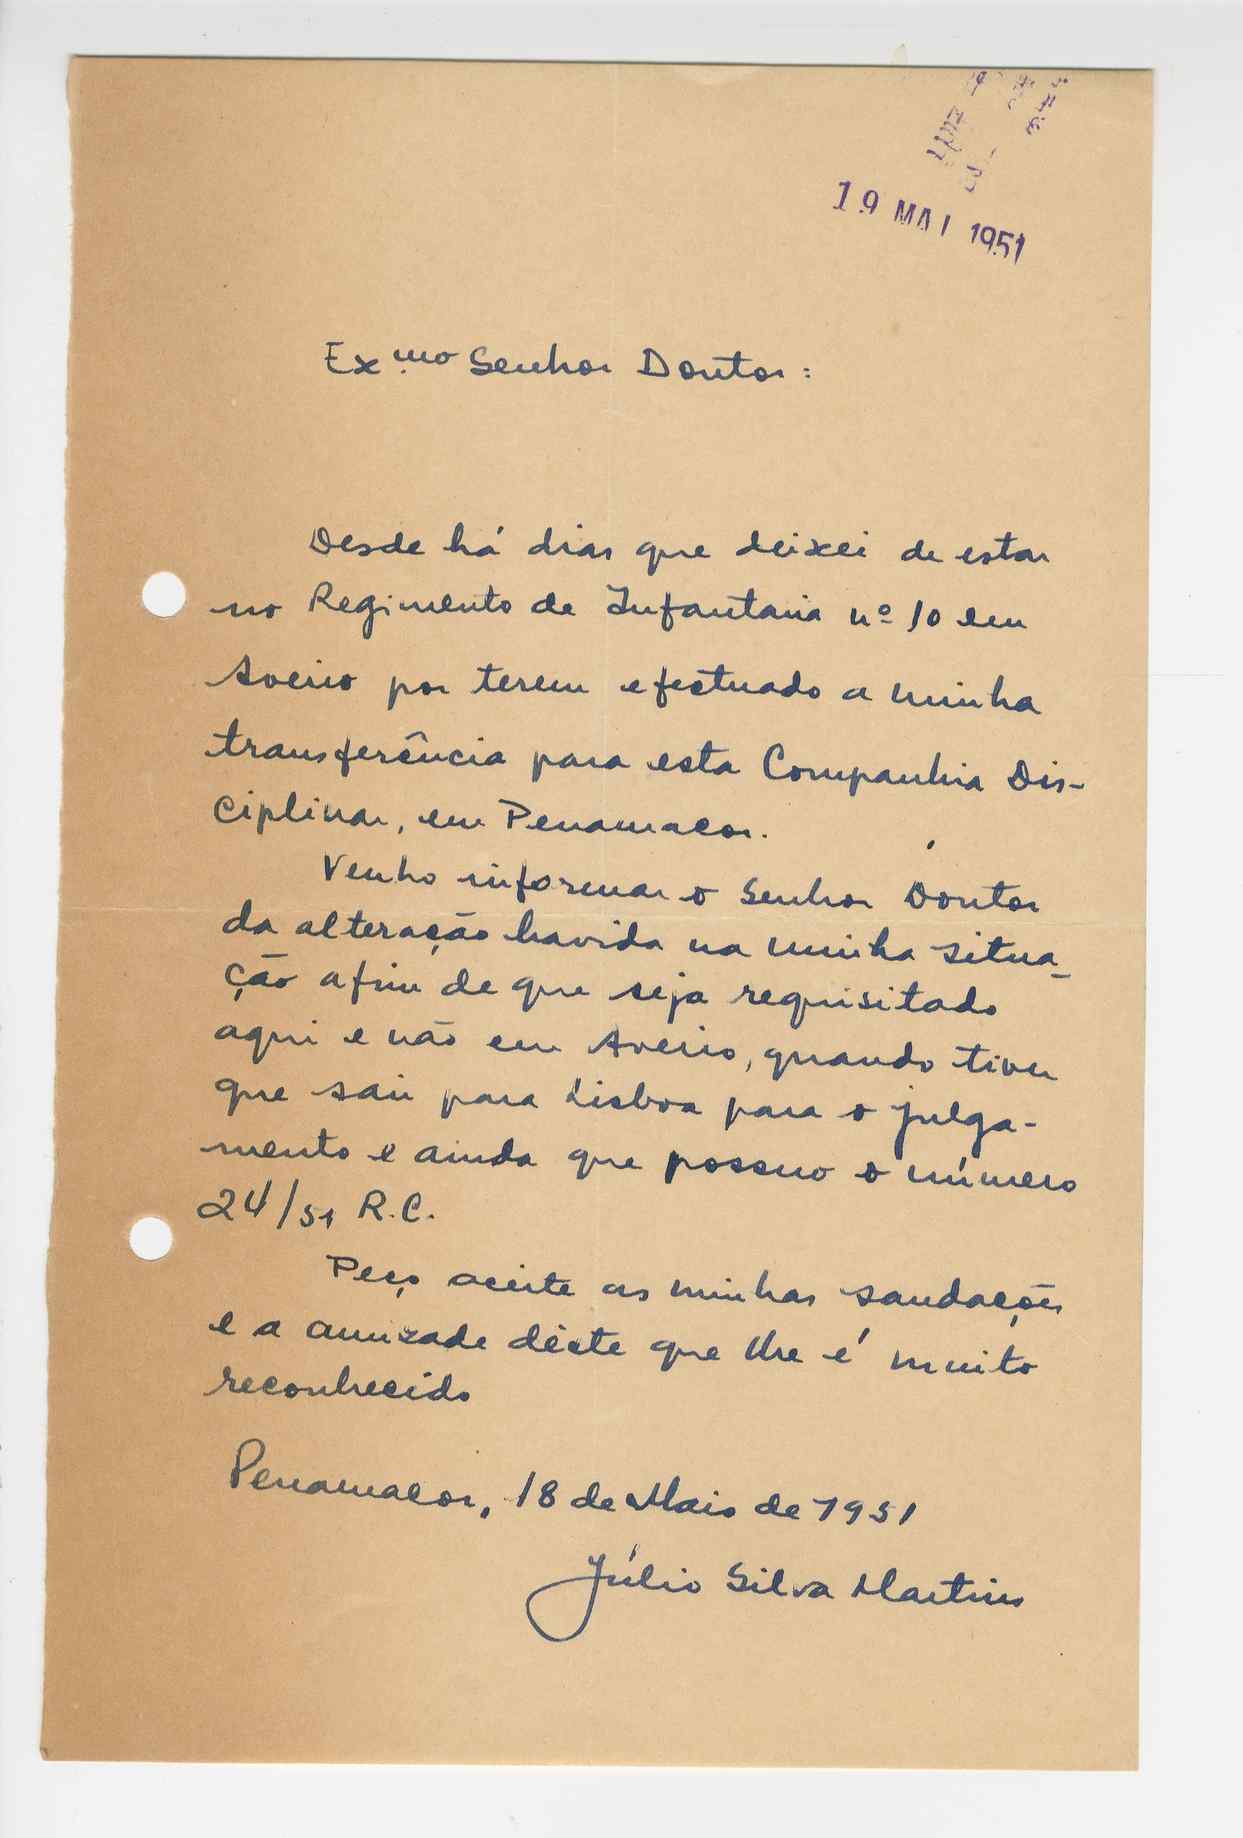 19 MAI 1951
Exmo Senhor Doutor:
Desde há dias que deixei de estar
no Regimento de Infantaria nº 10 em
Aveiro por terem efectuado a minha
transferência para esta Companhia Dis-
ciplinar, em Penamacor.
Venho informar o Senhor Doutor
da alteração havida na minha situa-
ção afim de que seja requisitado
aqui e não em Aveiro, quando tiver
que sair para Lisboa para o julga-
mento e ainda que possuo o número
24/51 R.C.
Peço aceite as minhas saudações
e a amizade dêste que lhe é muito
reconhecido
Penamacor, 18 de Maio de 1951
Júlio Silva Martins